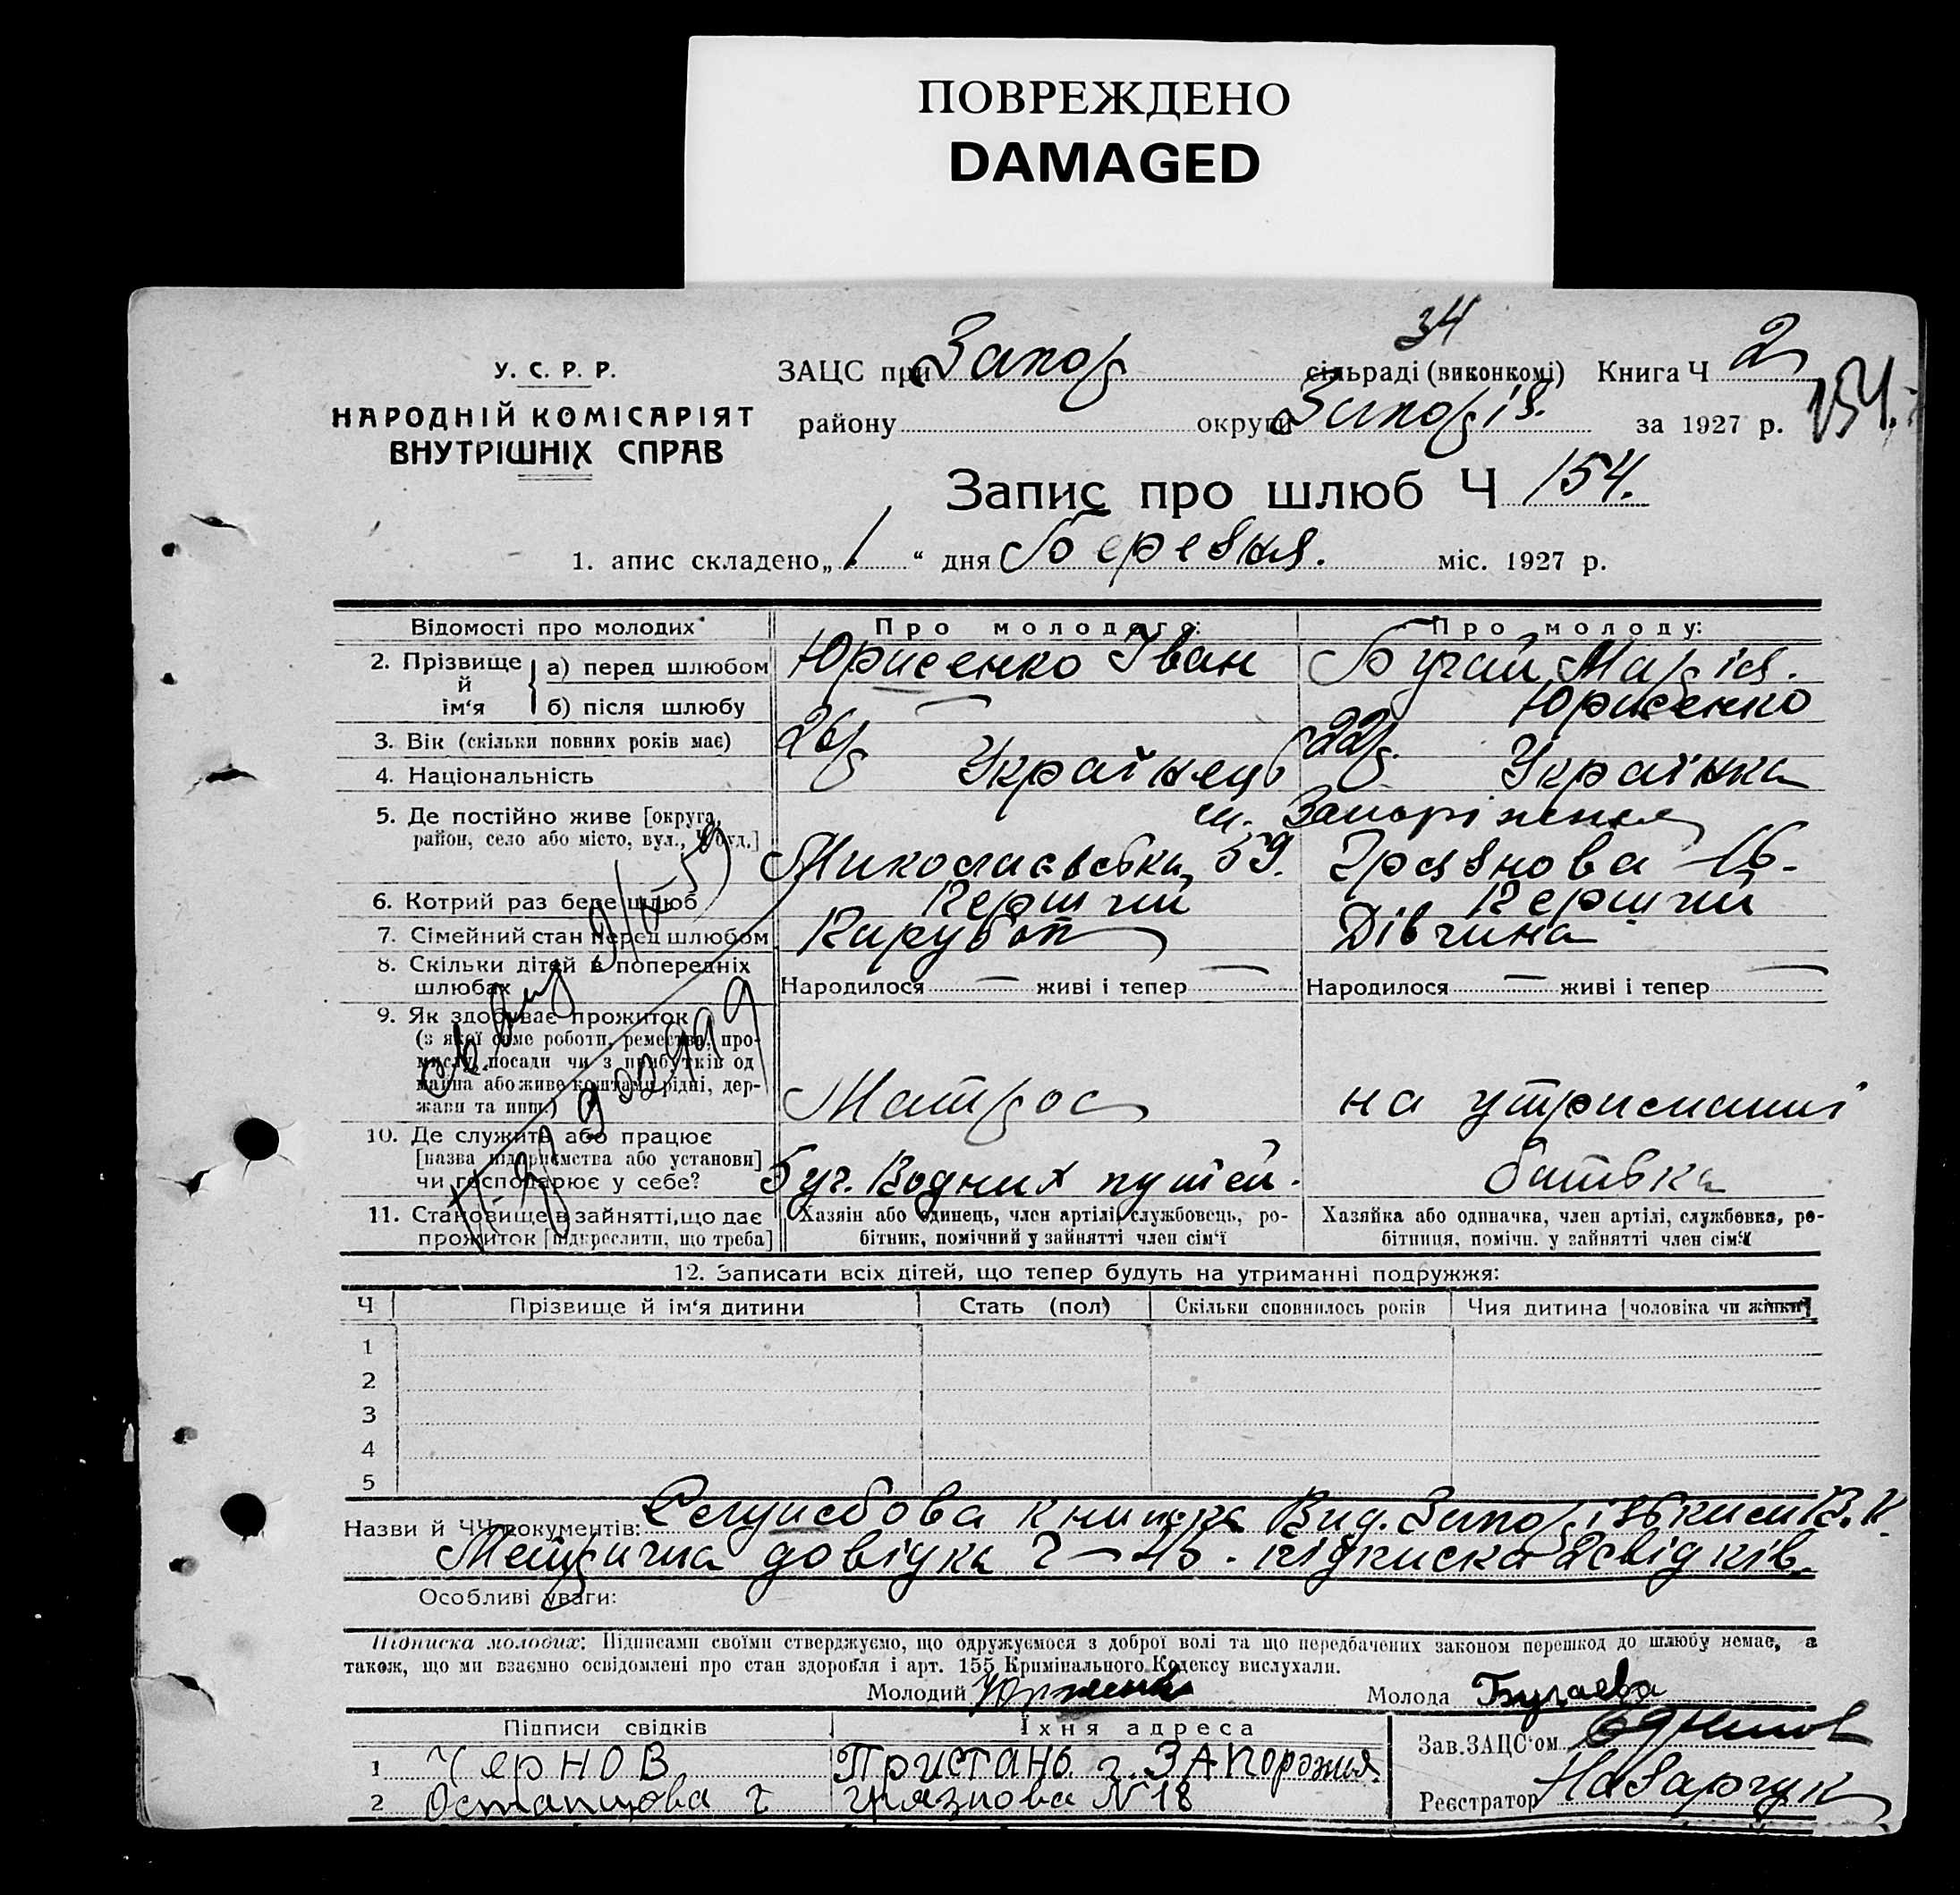 ПОВРЕЖДЕНО
DAMAGED
34
У. С. Р. Р.
НАРОДНІЙ КОМІСАРІЯТ
ВНУТРІШНІХ СПРАВ
ЗАЦС при Запор сільраді (виконкомі) Книга Ч 2
району округи Запоріз. за 1927 р.
154.
Запис про шлюб Ч 154.
1. апис складено „1“ дня Березня. міс. 1927 р.
Відомості про молодих Про молодого: Про молоду:
2. Прізвище й ім‘я а) перед шлюбом Юрисенко Іван Бугай Марія.
б) після шлюбу — Юрисенко
3. Вік (скільки повних років має) 26 р 22 р.
4. Національність Українець Українка
5. Де постійно живе [округа, район, село або місто, вул., Ч буд.] м. Запоріжжя
Миколаєвська, 59. Грязнова 16.
6. Котрий раз бере шлюб Перший Перший
7. Сімейний стан перед шлюбом Парубок Дівчина
8. Скільки дітей в попередніх шлюбах Народилося — живі і тепер — Народилося — живі і тепер —
9. Як здобуває прожиток
(з якої саме роботи, ремества, про-
мислу, посади чи з прибутків од
майна або живе коштами рідні, дер-
жави та инш.) Матрос на утриманні
10. Де служить або працює
[назва підприємства або установи]
чи господарює у себе? Буч. Водних путей. батька
11. Становище в зайнятті, що дає
прожиток [підкреслити, що треба]
Хазяін або одинець, член артілі, службовець, ро-
бітник, помічний у зайнятті член сім‘ї
Хазяйка або одиначка, член артілі, службовка, ро-
бітниця, помічн. у зайнятті член сім‘ї
12. Записати всіх дітей, що тепер будуть на утриманні подружжя:
Ч Прізвище й ім‘я дитини Стать (пол) Скільки сповнилось років Чия дитина [чоловіка чи жінки]
1
2
3
4
5
Назви й ЧЧ документів: Служебова книжка Вид. Запорізьким В.К.
Метрична довідка Ч — 45. підписка 2 свідків.
Особливі уваги:
Підписка молодих: Підписами своїми стверджуємо, що одружуємося з доброї волі та що передбачених законом перешкод до шлюбу немає, а
також, що ми взаємно освідомлені про стан здоров‘я і арт. 155 Кримінального Кодексу вислухали.
Молодий Юрисенко Молода Бугаева
Підписи свідків Їхня адреса
1 Чернов Пристань г. Запорожья.
2 Остапцова г Грязнова N 18
Зав. ЗАЦС‘ом
Реєстратор Назарчук